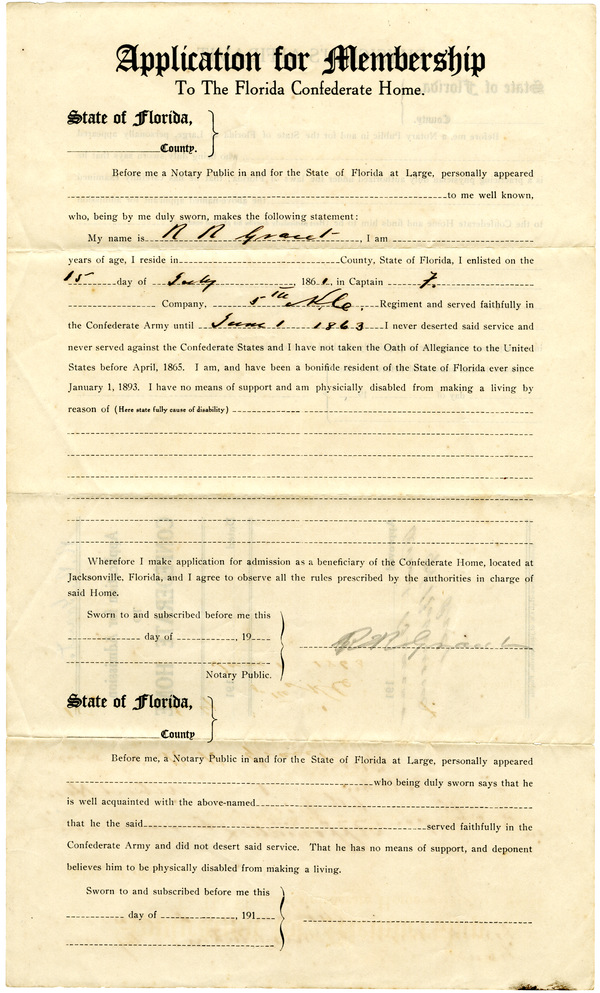 Application for Membership
To The Florida Confederate Home.
State of Florida,
County.
Before me a Notary Public in and for the State of Florida at Large, personally appeared
to me well known,
who, being by me duly sworn, makes the following statement:
My name is R R Grant, I am
years of age, I reside in County, State of Florida, I enlisted on the
15 day of July, 1861, in Captain F.
Company, 5th N.C. Regiment and served faithfully in
the Confederate Army until June 1 1863 I never deserted said service and
never served against the Confederate States and I have not taken the Oath of Allegiance to the United
States before April, 1865. I am, and have been a bonifide resident of the State of Florida ever since
January 1, 1893. I have no means of support and am physicially disabled from making a living by
reason of (Here state fully cause of disability)
Wherefore I make application for admission as a beneficiary of the Confederate Home, located at
Jacksonville, Florida, and I agree to observe all the rules prescribed by the authorities in charge of
said Home.
Sworn to and subscribed before me this
day of , 19
R R Grant
Notary Public.
State of Florida,
County
Before me, a Notary Public in and for the State of Florida at Large, personally appeared
who being duly sworn says that he
is well acquainted with the above-named
that he the said served faithfully in the
Confederate Army and did not desert said service. That he has no means of support, and deponent
believes him to be physically disabled from making a living.
Sworn to and subscribed before me this
day of , 191